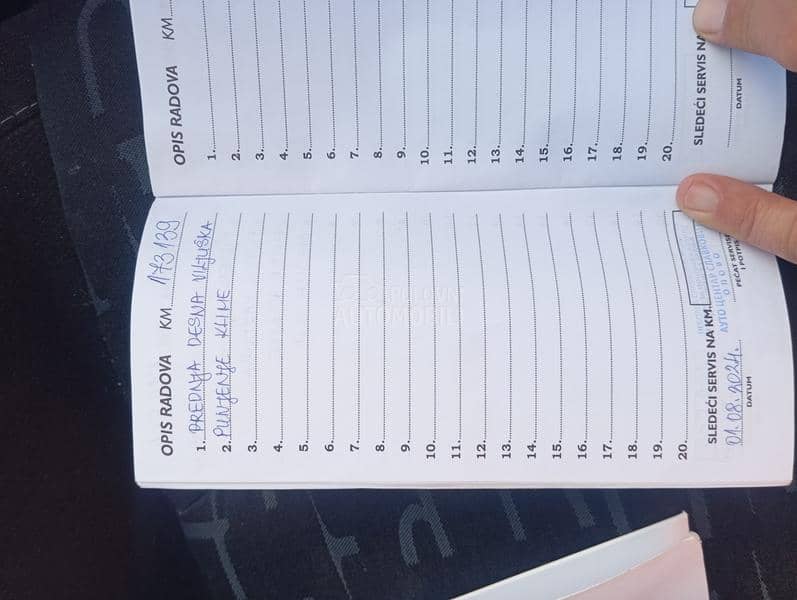 OPIS RADOVA KM
1.
2.
3.
4.
5.
6.
7.
8.
9.
10.
11.
12.
13.
14.
15.
16.
17.
18.
19.
20.
SLEDEĆI SERVIS NA
DATUM
OPIS RADOVA KM 173139
1. PREDNJA DESNA VILJUŠKA
2. PUNJENJE KLIME
3.
4.
5.
6.
7.
8.
9.
10.
11.
12.
13.
14.
15.
16.
17.
18.
19.
20.
SLEDEĆI SERVIS NA KM.
АУТО ЦЕНТАР
ОПОВО
01.08.2024.
DATUM
PEČAT SERVISA
I POTPIS
POLOVNI
AUTOMOBILI